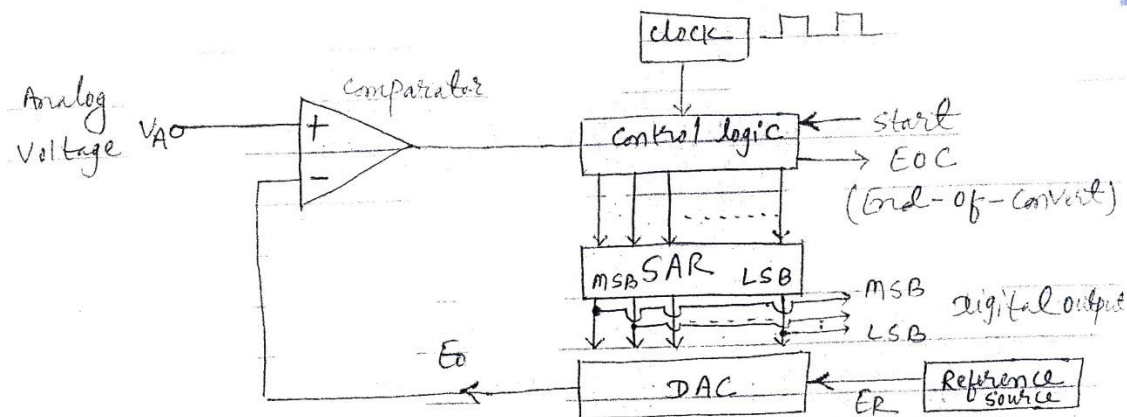 clock
Analog
Voltage
VA
comparator
+
-
control logic
start
EOC
(End-of-convert)
MSB SAR LSB
MSB
LSB
Digital output
E0
DAC
ER
Reference
source